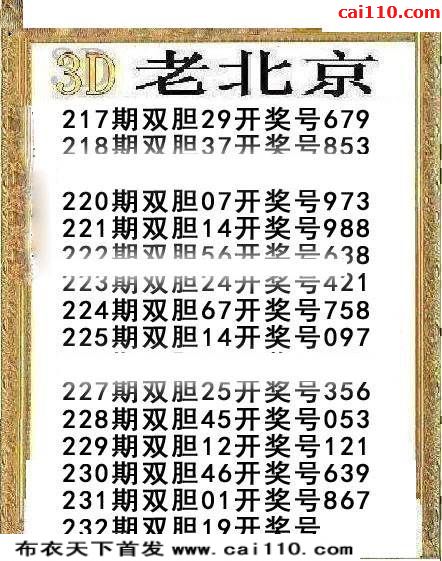 cai110.com
3D 老北京
217期双胆29开奖号679
218期双胆37开奖号853
220期双胆07开奖号973
221期双胆14开奖号988
222期双胆56开奖号638
223期双胆24开奖号421
224期双胆67开奖号758
225期双胆14开奖号097
227期双胆25开奖号356
228期双胆45开奖号053
229期双胆12开奖号121
230期双胆46开奖号639
231期双胆01开奖号867
232期双胆19开奖号
布衣天下首发 www.cai110.com